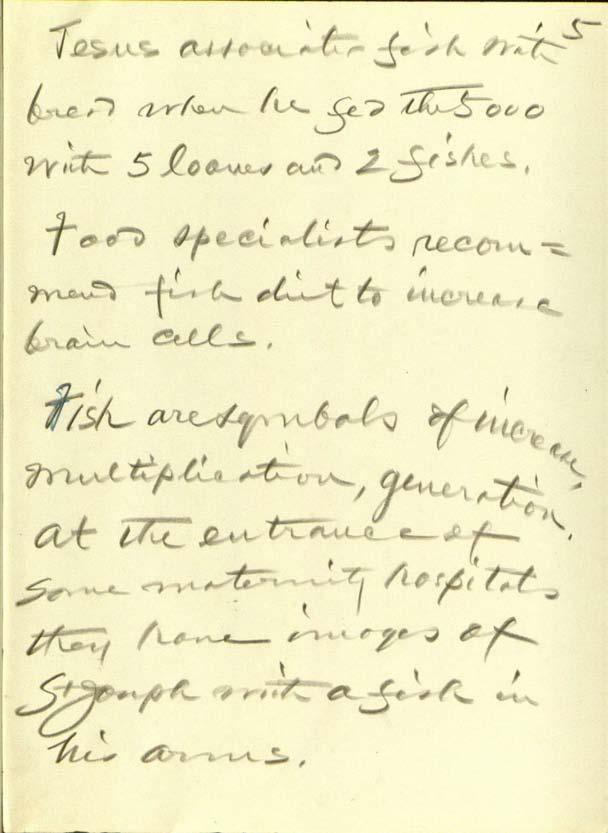 5
Jesus associates fish with
bread when he fed the 5000
with 5 loaves and 2 fishes.
Food specialists recom=
mend fish diet to increase
brain cells.
Fish are symbols of increase,
multiplication, generation.
At the entrance of
some maternity hospitals
they have images of
St Joseph with a fish in
his arms.